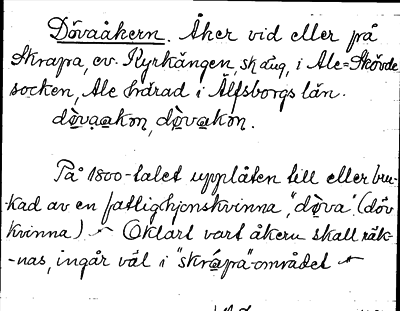 Dövaåkern. Åker vid eller på
Skrapa, ev. Kyrkängen, sk dug, i Ale=Skövde
socken, Ale härad i Älfsborgs län.
dòva̱akon, dòva̱kon.
På 1800-talet upplåten till eller bru-
kad av en fattighjonskvinna, "döva" (döv
kvinna) Oklart vart åkern skall räk-
-nas, ingår väl i "skråpa"-området